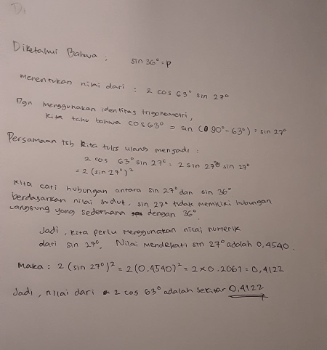 Diketahui Bahwa. sin 36° = p
Menentukan nilai dari : 2 cos 63° sin 27°
Dgn menggunakan identitas trigonometri,
Kita tahu bahwa cos 63° = sin (90° - 63°) = sin 27°
Persamaan tsb kita tulis ulang menjadi :
2 cos 63° sin 27° = 2 sin 27° sin 27°
= 2 (sin 27°)²
Kita cari hubungan antara sin 27° dan sin 36°
berdasarkan nilai sin 27° tidak memiliki hubungan
langsung yang sederhana dengan 36°
Jadi, kita perlu menggunakan nilai numerik
dari sin 27°, Nilai mendekati sin 27° adalah 0,4540.
Maka : 2 (sin 27°)² = 2 (0,4540)² = 2 × 0.2061 = 0,4122
Jadi, nilai dari 2 cos 63° adalah sekitar 0,4122